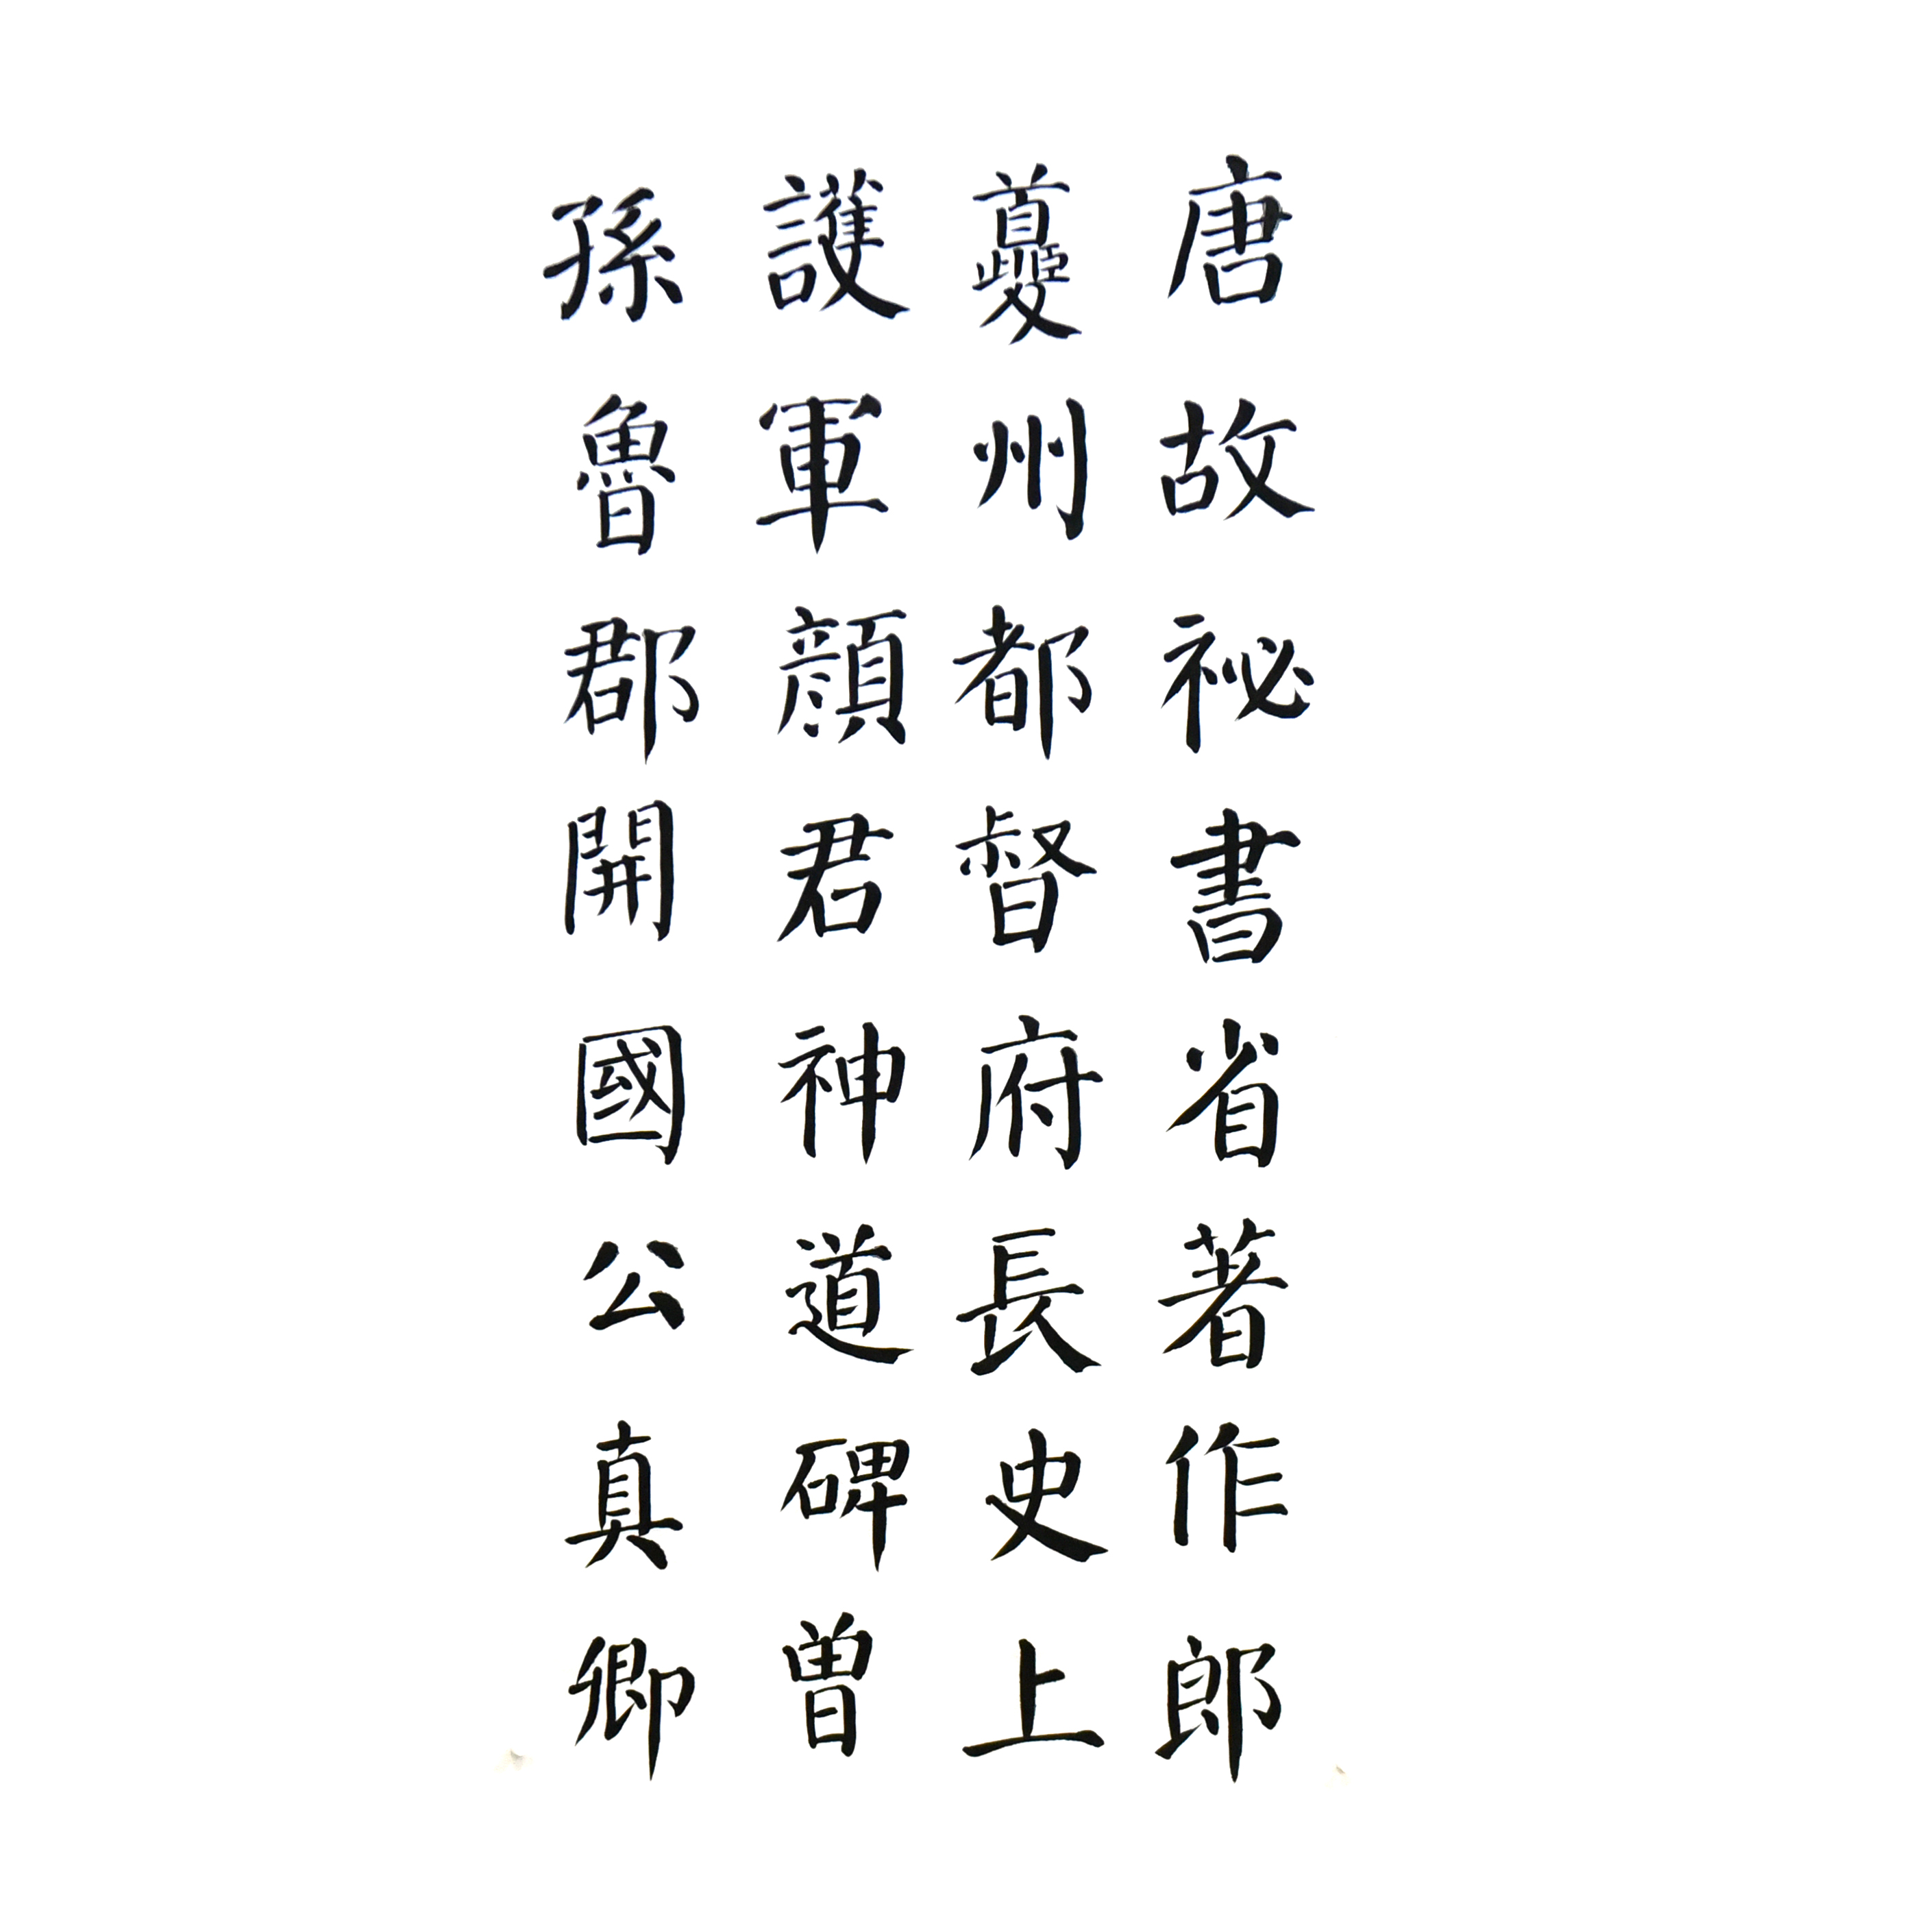 唐故祕書省著作郎
夔州都督府長史上
護軍顏君神道碑曾
孫魯郡開國公真卿